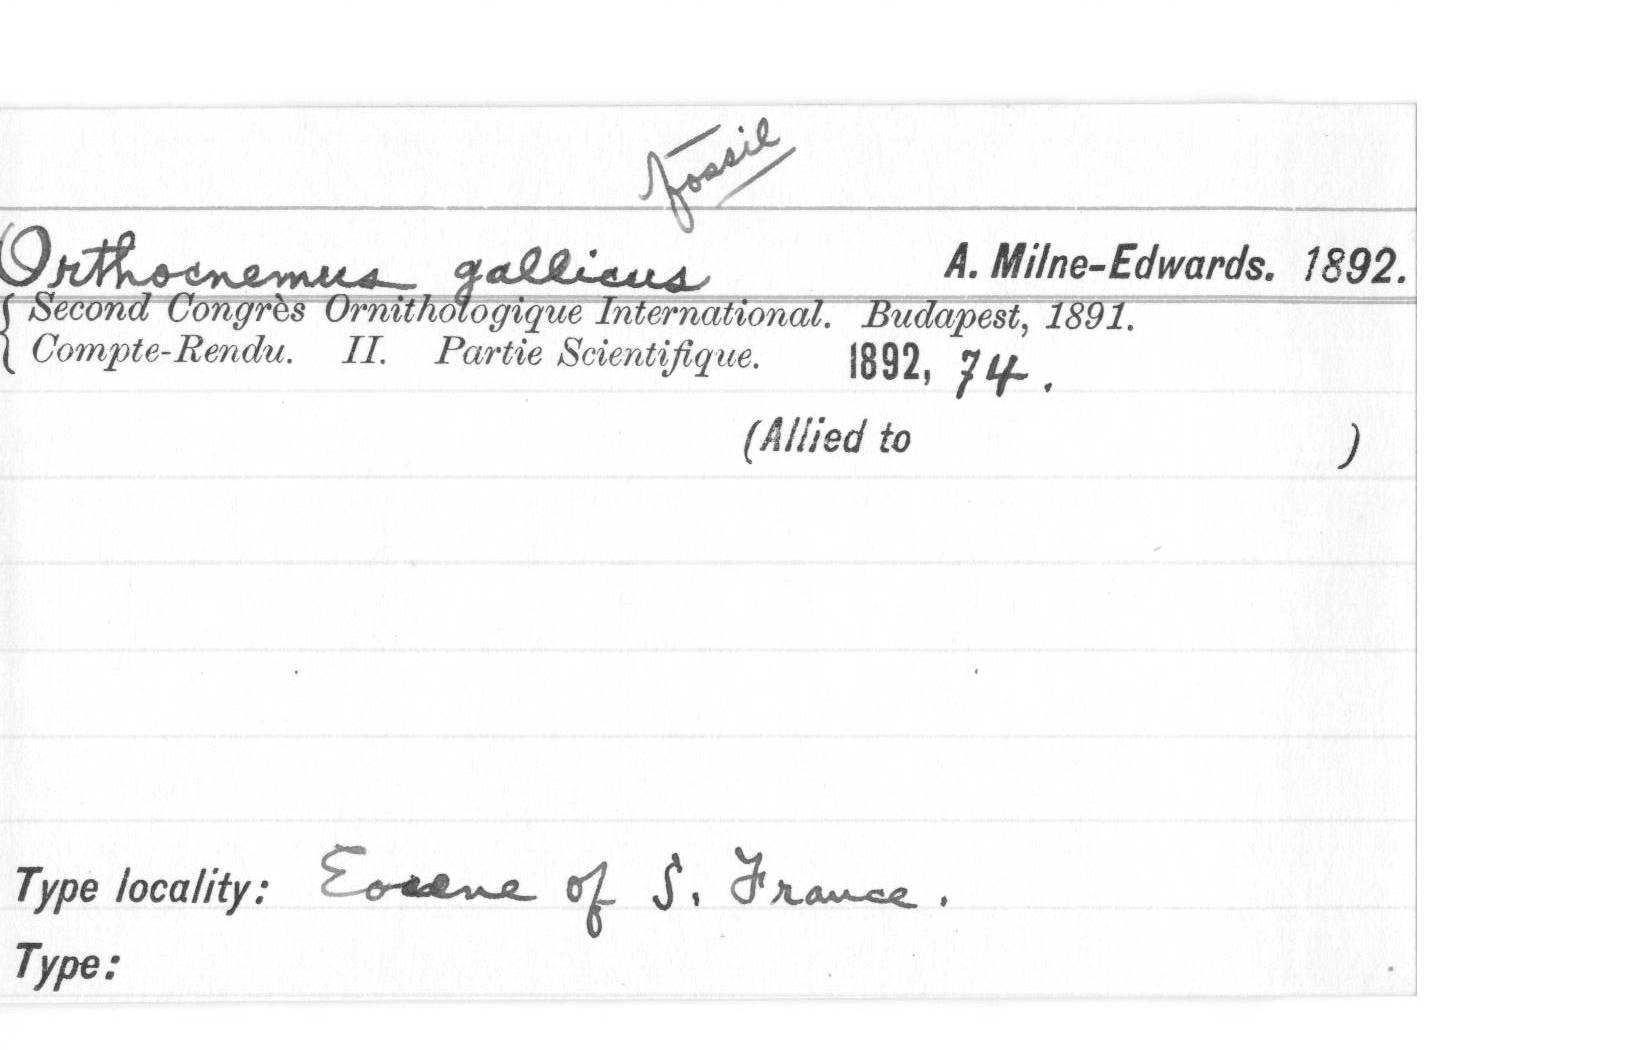 fossil
Orthocnemus gallicus A. Milne-Edwards. 1892.
{ Second Congrès Ornithologique International. Budapest, 1891.
Compte-Rendu. II. Partie Scientifique. 1892, 74.
(Allied to )
Type locality: Eocene of S. France.
Type: